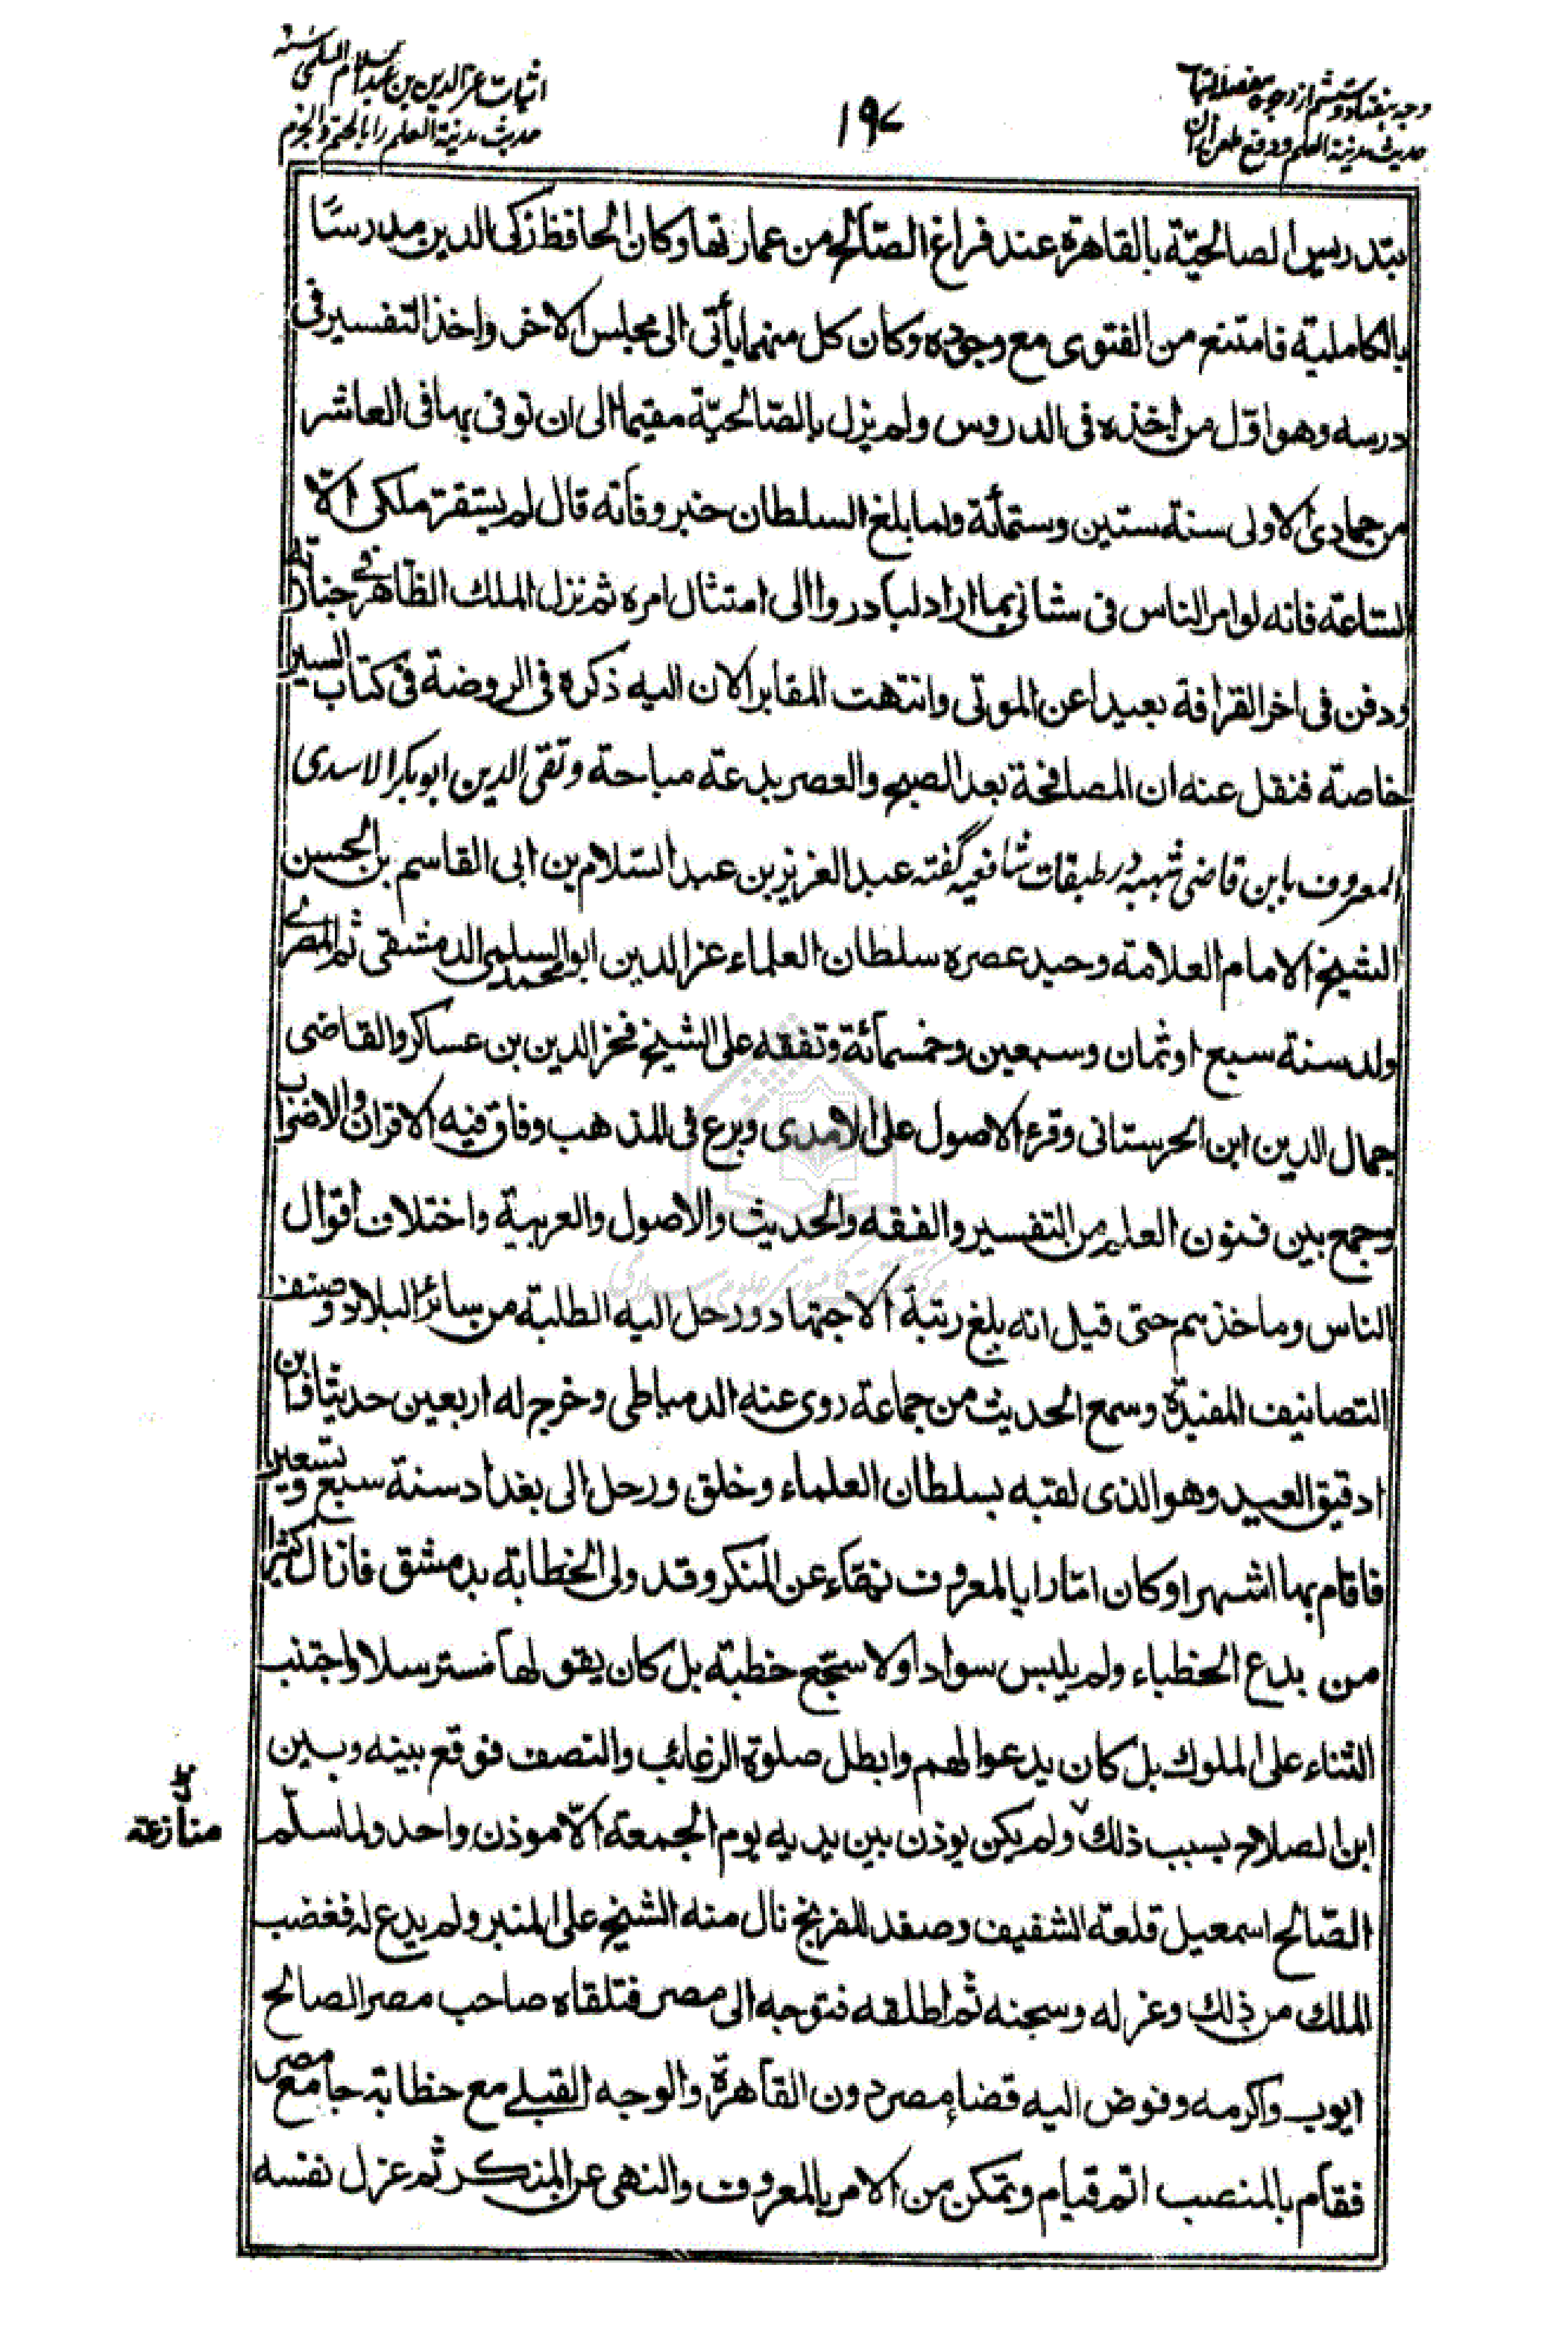 وجه هفتاد و ششم از وجوه مفصله اثبات
حديث مدينة العلم و دفع طعن از آن
۱۹۷
اثبات عز الدين بن عبد السلام السلمى
حديث مدينة العلم را بالحتم والجزم
بتدريس الصالحيّة بالقاهرة عند فراغ الصّالح من عمارتها وكان الحافظ زكى الدين مدرسًا
بالكاملية فامتنع من الفتوى مع وجوده وكان كل منهما يأتى الى مجلس الاخر واخذ التفسير فى
درسه وهو اوّل من اخذه فى الدروس ولم يزل بالصّالحيّة مقيما الى ان توفى بها فى العاشر
من جمادى الاولى سنة ستين وستمأته ولما بلغ السلطان خبر وفاته قال لم يستقرّ ملكى الّا
لساعة فانه لو امر الناس فى شانى بما اراد لبادروا الى امتثال امره ثم نزل الملك الظّاهر فى جنازته
ودفن فى اخر القرافة بعيدا عن الموتى وانتهت المقابر الان اليه ذكره فى الروضة فى كتاب السير
خاصة فنقل عنه ان المصافحة بعد الصبح والعصر بدعة مباحة وتقى الدين ابو بكر الاسدى
المعروف بابن قاضى شهبه در طبقات شافعيه گفته عبد العزيز بن عبد السّلام بن ابى القاسم بن الحسن
الشيخ الامام العلامة وحيد عصره سلطان العلماء عز الدين ابو محمد السلمى الدمشقى ثم المصرى
ولد سنة سبع او ثمان وسبعين وخمسمأئة وتفقه على الشيخ فخر الدين بن عساكر والقاضى
جمال الدين ابن الحرستانى وقرء الاصول على الامدى وبرع فى المذهب وفاق فيه الاقران والاضراب
وجمع بين فنون العلم من التفسير والفقه والحديث والاصول والعربية واختلاف اقوال
الناس وماخذهم حتى قيل انه بلغ رتبة الاجتهاد ورحل اليه الطلبة من سائر البلاد وصنف
التصانيف المفيدة وسمع الحديث من جماعة روى عنه الدمياطى وخرج له اربعين حديثا وابن
دقيق العيد وهو الذى لقبه بسلطان العلماء وخلق ورحل الى بغداد سنة سبع وتسعين
فاقام بها اشهرا وكان امّارا بالمعروف نهّاء عن المنكر وقد ولى الخطابة بدمشق فازال كثيرا
من بدع الخطباء ولم يلبس سوادا ولا سجّع خطبة بل كان يقولها مسترسلا واجتنب
الثناء على الملوك بل كان يدعو لهم وابطل صلوة الرغائب والنصف فوقع بينه وبين
ابن الصلاح بسبب ذلك ولم يكن يوذن بين يديه يوم الجمعة الّا موذن واحد ولما سلّم
منازعة
الصّالح اسمعيل قلعة الشقيف وصفد للفرنج نال منه الشيخ على المنبر ولم يدع له فغضب
الملك من ذلك وعزله وسجنه ثم اطلقه فتوجه الى مصر فتلقاه صاحب مصر الصالح
ايوب واكرمه وفوض اليه قضاء مصر دون القاهرة والوجه القبلى مع خطابة جامع مصر
فقام بالمنصب اتم قيام وتمكن من الامر بالمعروف والنهى عن المنكر ثم عزل نفسه